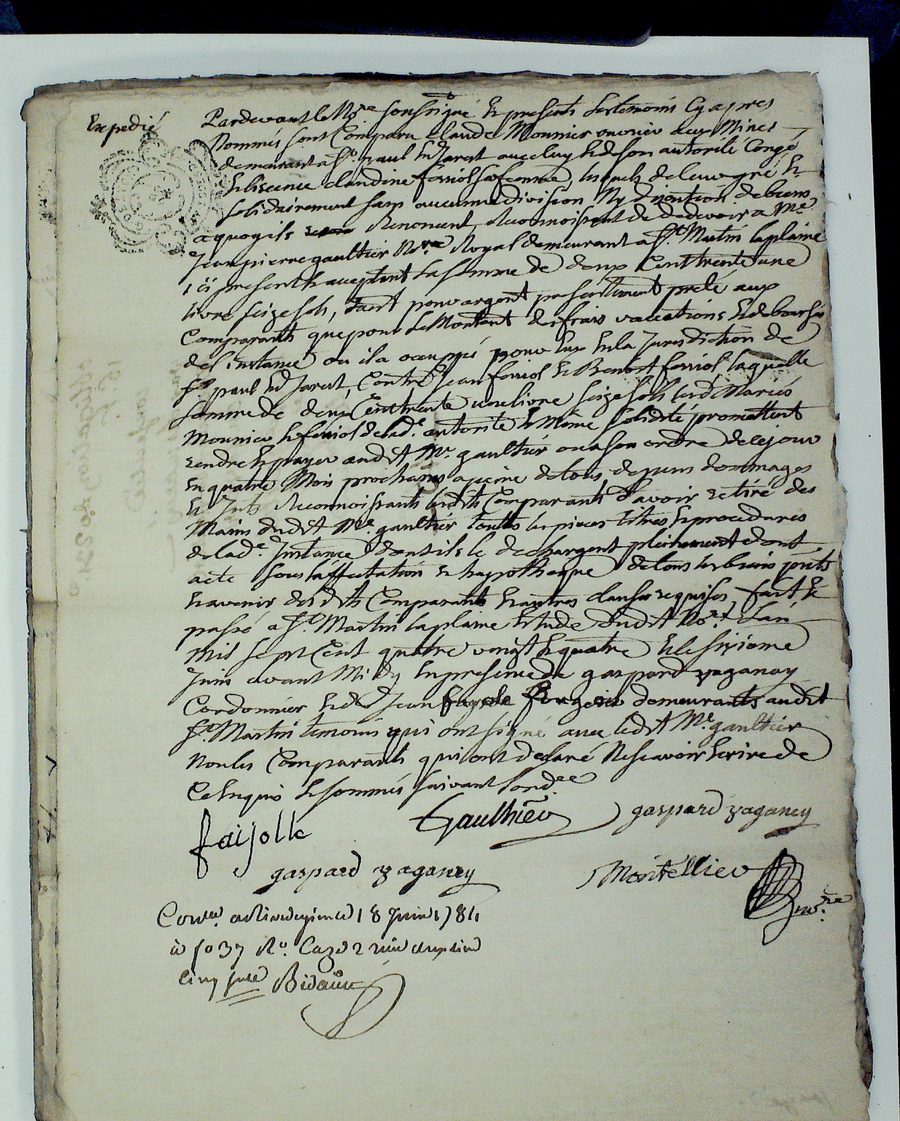 Expedié
Pardevant le No.re soussigné Et presents les temoins Cy apres
Nommés sont Comparu Claude Monnier ouvrier aux Mines
demeurant a St. paul En Jarest avec luy Et de son autorité Congé
Et licence Claudine ferriol sa femme, lesquels de leur gré Et
solidairement sans aucune division Ny discution de biens
a quoy ils Renoncent, Reconnoissent de devoir a Me.
Jean pierre gaultier No.re Royal demeurant a St. Martin la plaine
icy present Et acceptant La somme de deux Cent trente une
livre seize sols, tant pour argent presentement preté aux
Comparants que pour Le Montant des frais vacations Et debourses
de l'instance ou il a occuppé pour Eux En la Jurisdiction de
St. paul En Jarest, Contre Jean ferriol Et Benoit ferriol, laquelle
somme de deux Cent trente une livre seize sols lesd. Mariés
Monnier Et ferriol de lad.e autorité Et Meme solidité promettent
rendre Et payer audit Me. gaultier ou a son ordre de ce jour
En quatre Mois prochains a peine de tous depens dommages
Et Ints. Reconnoissants lesdits Comparants d'avoir retiré des
Mains dudit Me. gaultier toutes les pieces titres Et procedures
de lad.e Instance dont ils le dechargent pleinement dont
acte sous l'affectation Et hypotheque de tous les biens pnts
Et avenir desdits Comparants Et autres clauses requises fait Et
passé a St. Martin la plaine Etude dudit No.re L'an
Mil sept Cent quatre vingt Et quatre Et le sixieme
Juin avant Midy En presence de gaspard vaganay
Cordonnier Et de Jean demeurants audit
St. Martin temoins qui ont signé avec ledit Me. gaultier
Non les Comparants qui ont declaré Ne scavoir Ecrire de
Ce Enquis Et sommés suivant L'ord.ce
faijolle Gaulthier gaspard vaganey
gaspard vaganey Montellier No.re
Con.lé a Rivedegier ce 18 Juin 1784
à fo 37 Ro. Caze 2 reçu
cinq sols Bidault